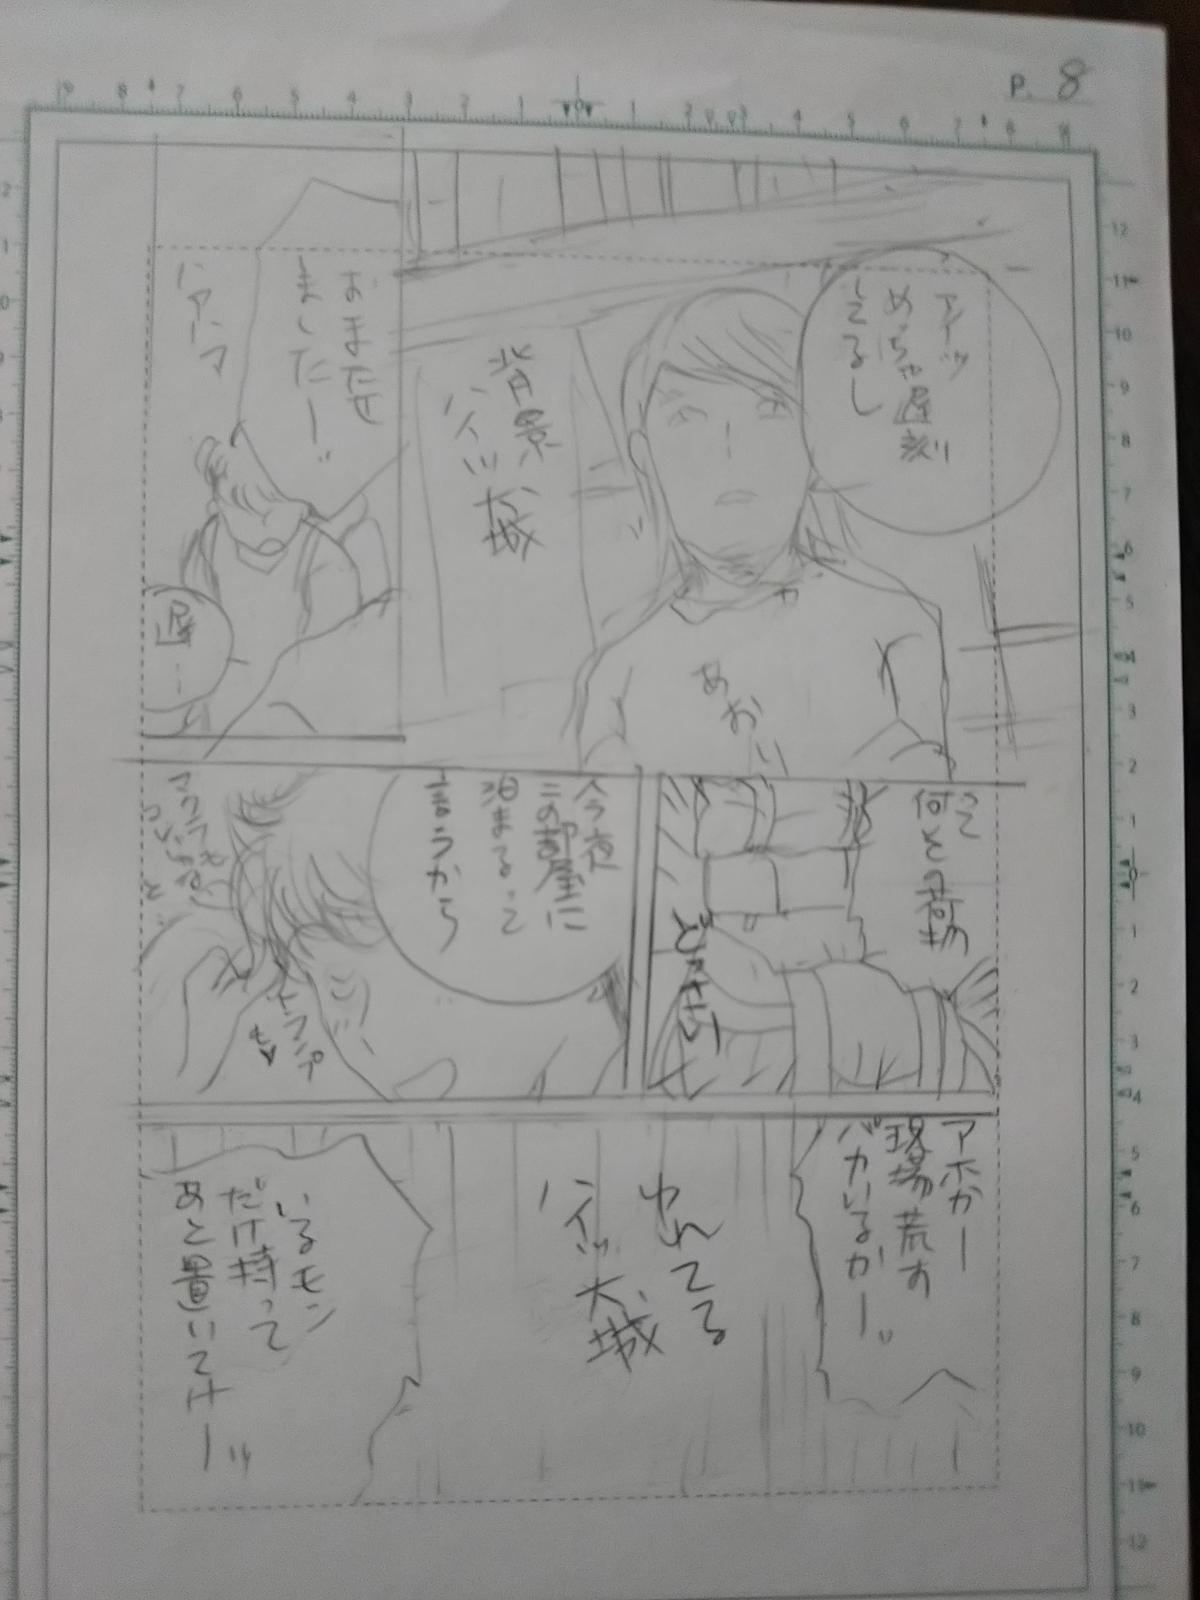 P. 8
アイツ
めっちゃ遅刻
してるし
背景
ハイツ大城
あおい
おまたせ
ましたー!!
ハァハァ
遅…
って
何その荷物
どっさりっ
今夜
この部屋に
泊まるって
言うから
トランプ
も♥
アホかー
現場荒す
バカいるかー!!
ゆれてる
ハイツ大城
いるモン
だけ持って
あと置いてけー!!